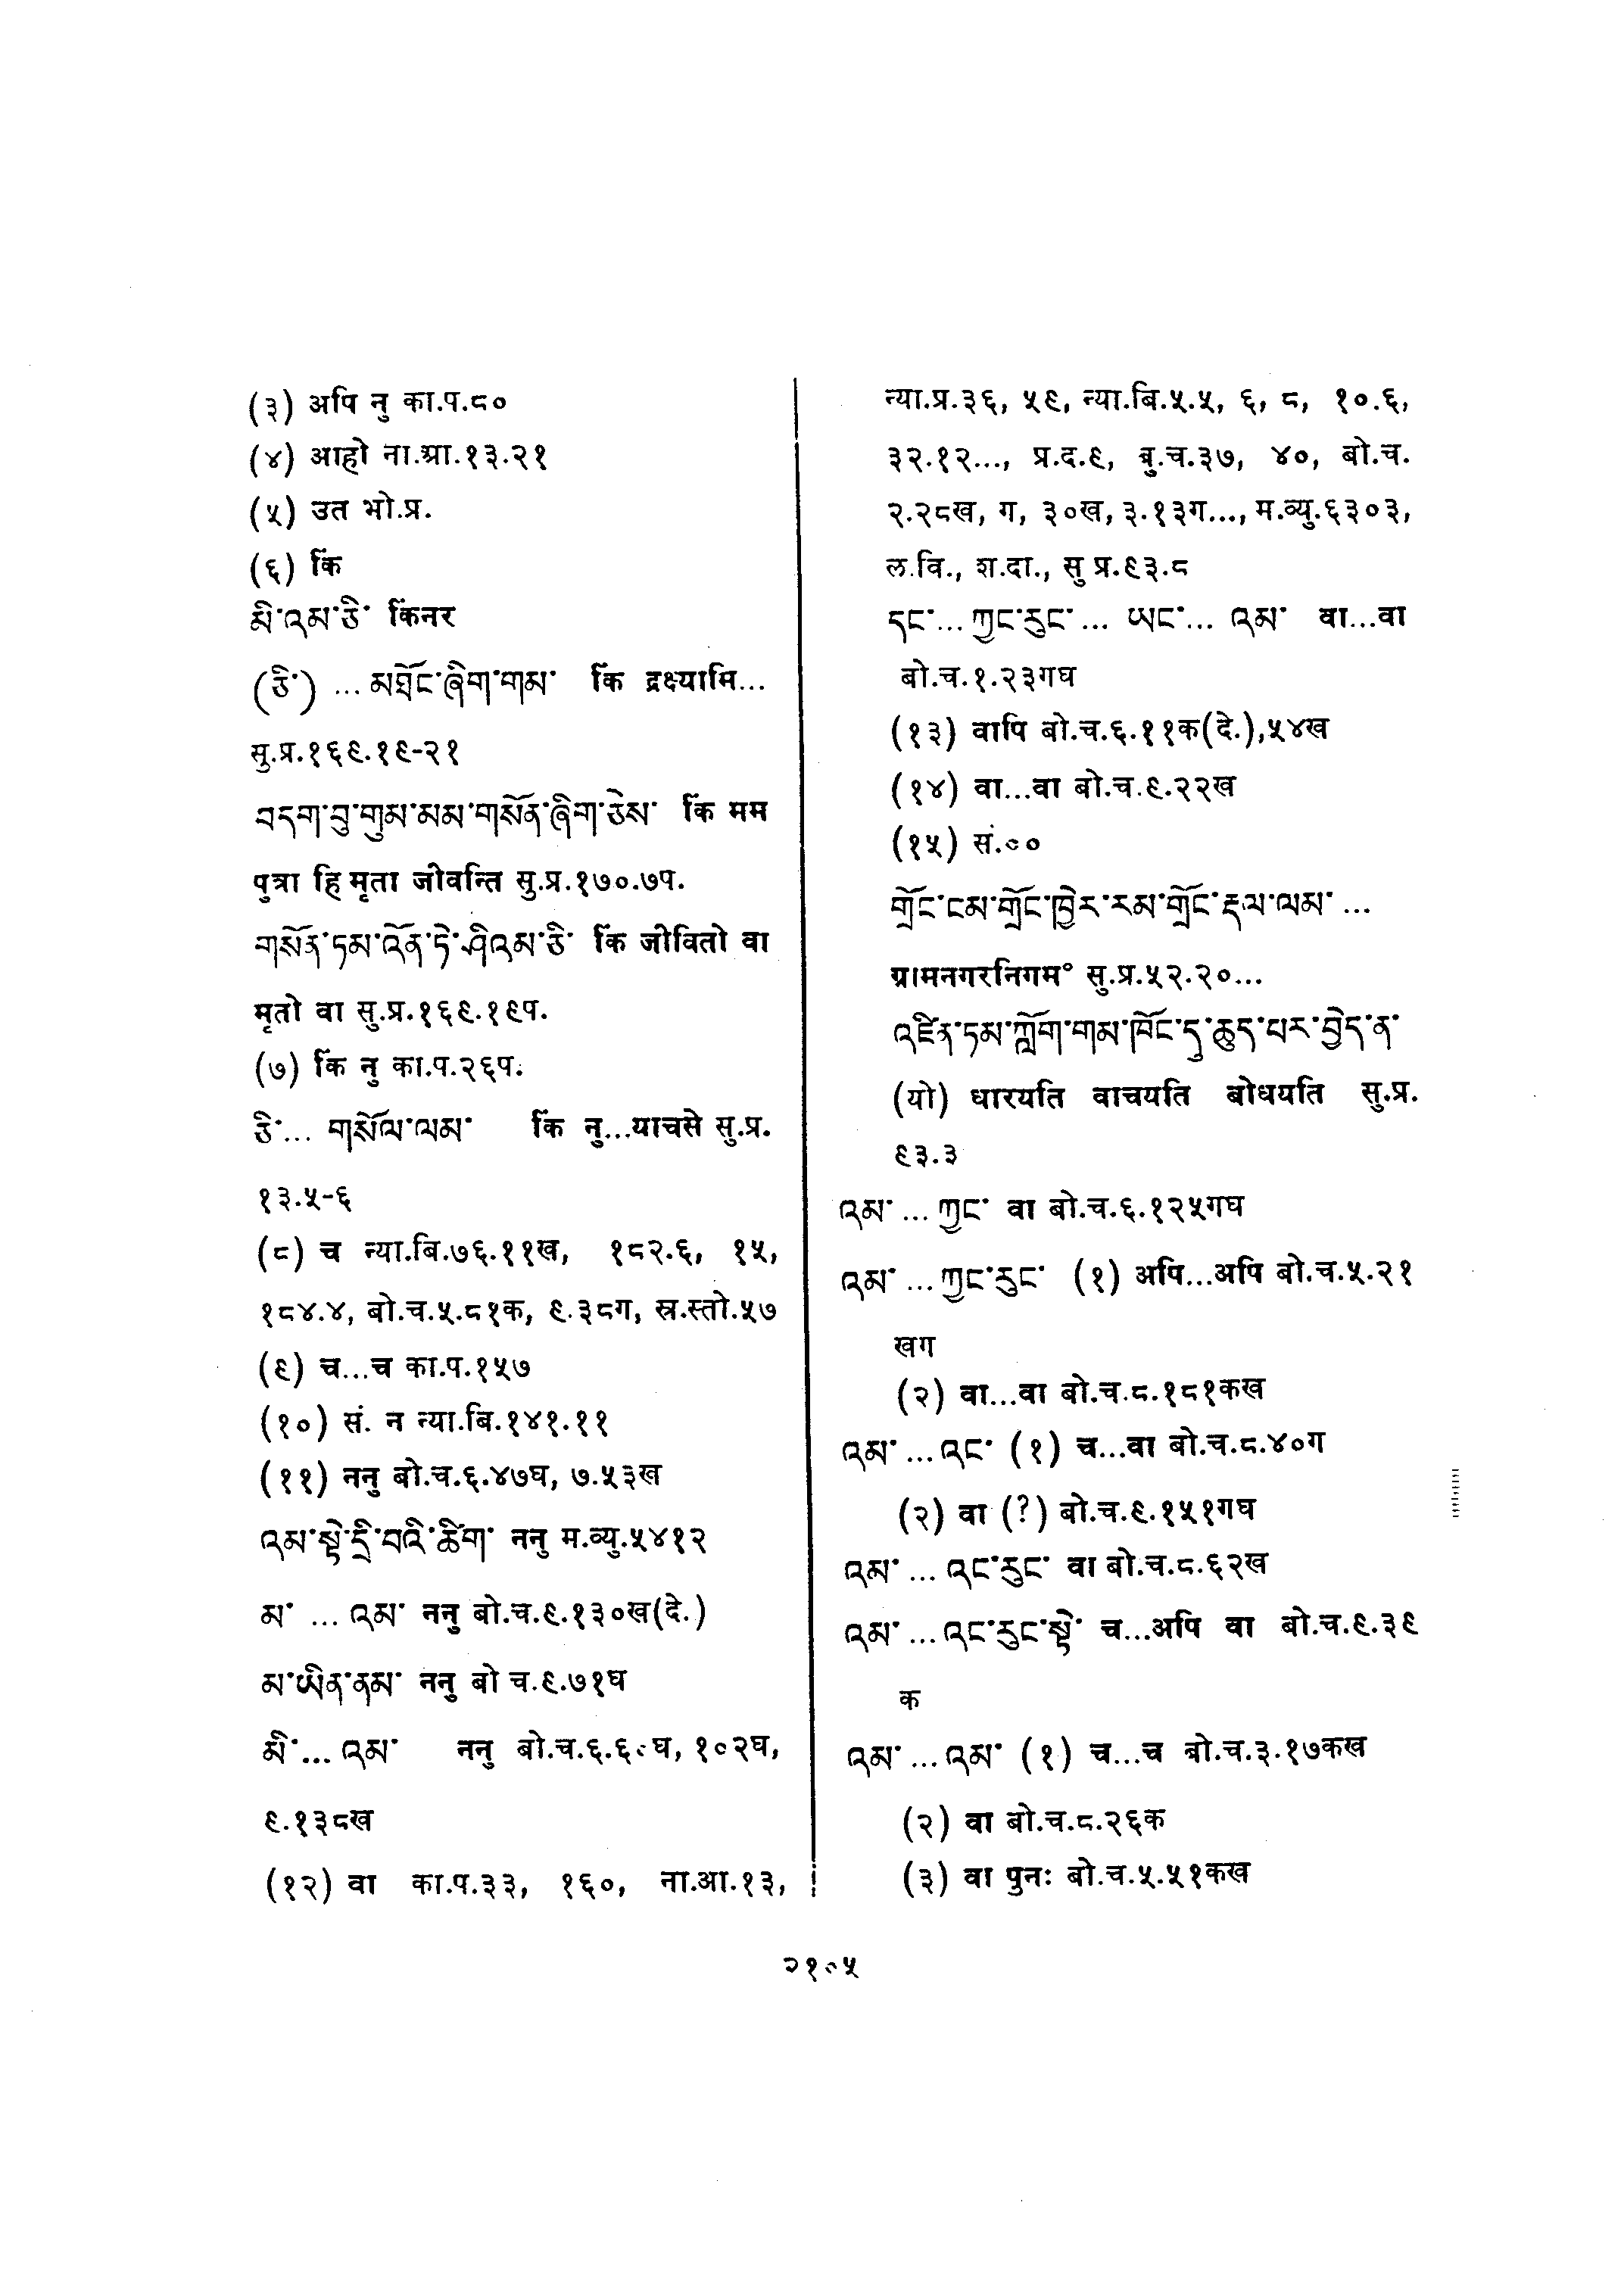 (३) अपि नु का.प.८०
(४) आहो ना.आ.१३.२१
(५) उत भो.प्र.
(६) किं
མི་འམ་ཅི་ किंनर
(ཅི་) ... མཐོང་ཞིག་གམ་ किं द्रक्ष्यामि...
सु.प्र.१६९.१९-२१
བདག་བུ་གུམ་མམ་གསོན་ཞིག་ཅེས་ किं मम
पुत्रा हि मृता जीवन्ति सु.प्र.१७०.७प.
གསོན་ཏམ་འོན་ཏེ་ཤིའམ་ཅི་ किं जीवितो वा
मृतो वा सु.प्र.१६९.१९प.
(७) किं नु का.प.२६प.
ཅི་... གསོལ་ལམ་ किं नु...याचसे सु.प्र.
१३.५-६
(८) च न्या.बि.७६.११ख, १८२.६, १५,
१८४.४, बो.च.५.८१क, ९.३८ग, स्र.स्तो.५७
(९) च...च का.प.१५७
(१०) सं. न न्या.बि.१४१.११
(११) ननु बो.च.६.४७घ, ७.५३ख
འམ་སྟེ་དྲི་བའི་ཚིག་ ननु म.व्यु.५४१२
མ་ ... འམ་ ननु बो.च.९.१३०ख(दे.)
མ་ཡིན་ནམ་ ननु बो च.९.७१घ
མི་... འམ་ ननु बो.च.६.६०घ, १०२घ,
९.१३८ख
(१२) वा का.प.३३, १६०, ना.आ.१३,
न्या.प्र.३६, ५९, न्या.बि.५.५, ६, ८, १०.६,
३२.१२..., प्र.द.९, बु.च.३७, ४०, बो.च.
२.२८ख, ग, ३०ख, ३.१३ग..., म.व्यु.६३०३,
ल.वि., श.दा., सु प्र.९३.८
དང་... ཀྱང་རུང་... ཡང་... འམ་ वा...वा
बो.च.१.२३गघ
(१३) वापि बो.च.६.११क(दे.),५४ख
(१४) वा...वा बो.च.९.२२ख
(१५) सं.००
གྲོང་ངམ་གྲོང་ཁྱེར་རམ་གྲོང་རྡལ་ལམ་...
ग्रामनगरनिगम° सु.प्र.५२.२०...
འཛིན་ཏམ་ཀློག་གམ་ཁོང་དུ་ཆུད་པར་བྱེད་ན་
(यो) धारयति वाचयति बोधयति सु.प्र.
९३.३
འམ་ ... ཀྱང་ वा बो.च.६.१२५गघ
འམ་ ... ཀྱང་རུང་ (१) अपि...अपि बो.च.५.२१
खग
(२) वा...वा बो.च.८.१८१कख
འམ་ ... འང་ (१) च...वा बो.च.८.४०ग
(२) वा (?) बो.च.९.१५१गघ
འམ་ ... འང་རུང་ वा बो.च.८.६२ख
འམ་ ... འང་རུང་སྟེ་ च...अपि वा बो.च.९.३९
क
འམ་ ... འམ་ (१) च...च बो.च.३.१७कख
(२) वा बो.च.८.२६क
(३) वा पुनः बो.च.५.५१कख
२१०५